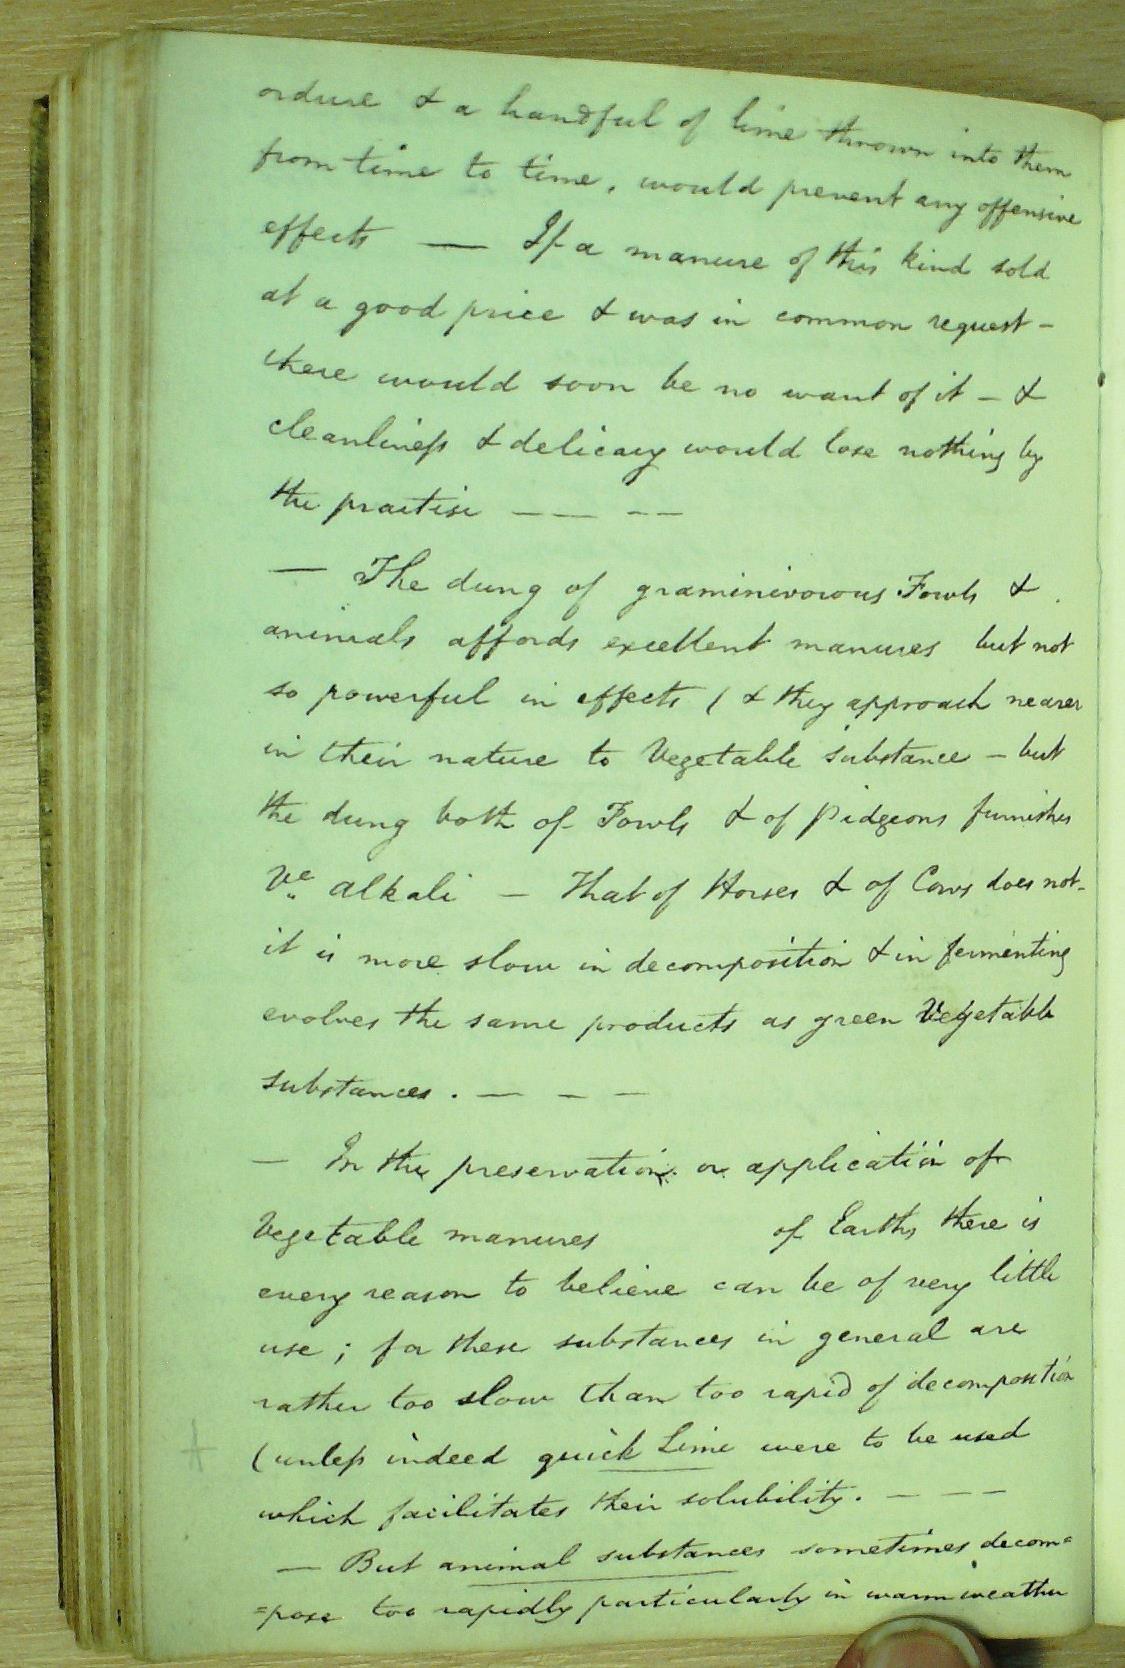 ordure & a handful of lime thrown into them
from time to time, would prevent any offensive
effects — If a manure of this kind sold
at a good price & was in common request -
there would soon be no want of it - &
cleanliness & delicacy would lose nothing by
the practise — — — —
— The dung of graminivorous Fowls &
animals affords excellent manures but not
so powerful in effects ( & they approach nearer
in their nature to Vegetable substance - but
the dung both of Fowls & of Pidgeons furnishes
Ve alkali - That of Horses & of Cows does not -
it is more slow in decomposition & in fermenting
evolves the same products as green Vegetable
substances. — — —
— In the preservation or application of
Vegetable manures of Earths there is
every reason to believe can be of very little
use; for these substances in general are
rather too slow than too rapid of decomposition
(unless indeed quick Lime were to be used
which facilitates their solubility. — — —
— But animal substances sometimes decom=
=pose too rapidly particularly in warm weather